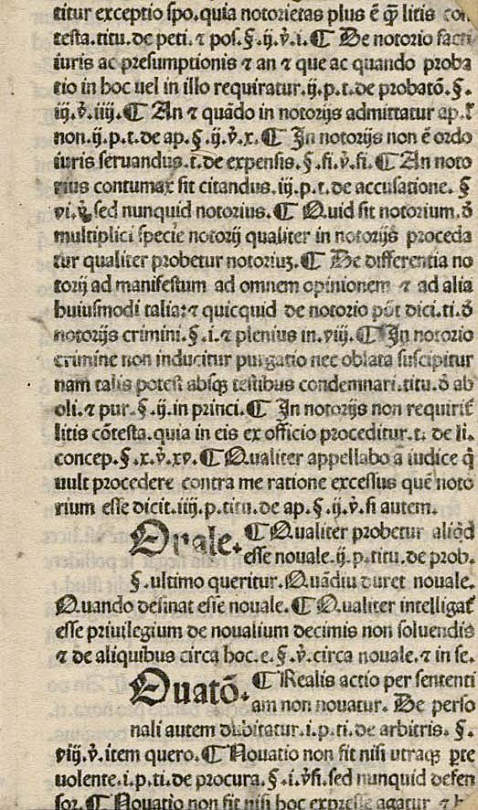 titur exceptio spo. quia notorietas plus ē q̄ȝ litis con
testa. titu. de peti. ⁊ pos. §. ij. v̓. i. ¶ De notorio facti
iuris ac presumptionis ⁊ an ⁊ que ac quando proba
tio in hoc uel in illo requiratur. ij. p. t. de probatō. §.
iij. v̓. iiij. ¶ An ⁊ quādo in notorijs admittatur ap. ł
non. ij. p. t. de ap. §. ij. v̓. x. ¶ In notorijs non ē ordo
iuris seruandus. t. de expensis. §. fi. v̓. fi. ¶ An noto
rius contumax sit citandus. iij. p. t. de accusatione. §
vi. v̓. sed nunquid notorius. ¶ Quid sit notorium. ð
multiplici specie notorij qualiter in notorijs proceda
tur qualiter probetur notoriuȝ. ¶ De differentia no
torij ad manifestum ad omnem opinionem ⁊ ad alia
huiusmodi talia: ⁊ quicquid de notorio pōt dici. ti. ð
notorijs crimini. §. i. ⁊ plenius in. viij. ¶ In notorio
crimine non inducitur purgatio nec oblata suscipitur
nam talis potest absqȝ testibus condemnari. titu. ð ab
oli. ⁊ pur. §. ij. in princi. ¶ In notorijs non requirit̄
litis cōtesta. quia in eis ex officio proceditur. t. de li.
concep. §. x. v̓. xv. ¶ Qualiter appellabo a iudice q̄
uult procedere contra me ratione excessus quē noto
rium esse dicit. iiij. p. titu. de ap. §. ij. v̓. si autem.
Ouale. ¶ Qualiter probetur aliq̄d
esse nouale. ij. p. titu. de prob.
§. ultimo queritur. Quādiu duret nouale.
Quando desinat esse nouale. ¶ Qualiter intelligat̄
esse priuilegium de noualium decimis non soluendis
⁊ de aliquibus circa hoc. e. §. v̓. circa nouale. ⁊ in se.
Ouatō. ¶ Realis actio per sententi
am non nouatur. De perso
nali autem dubitatur. i. p. ti. de arbitris. §.
viij. v̓. item quero. ¶ Nouatio non fit nisi utraqȝ pte
uolente. i. p. ti. de procura. §. i. v̓si. sed nunquid defen
sor. ¶ Nouatio non fit nisi hoc expresse agatur ⁊ h